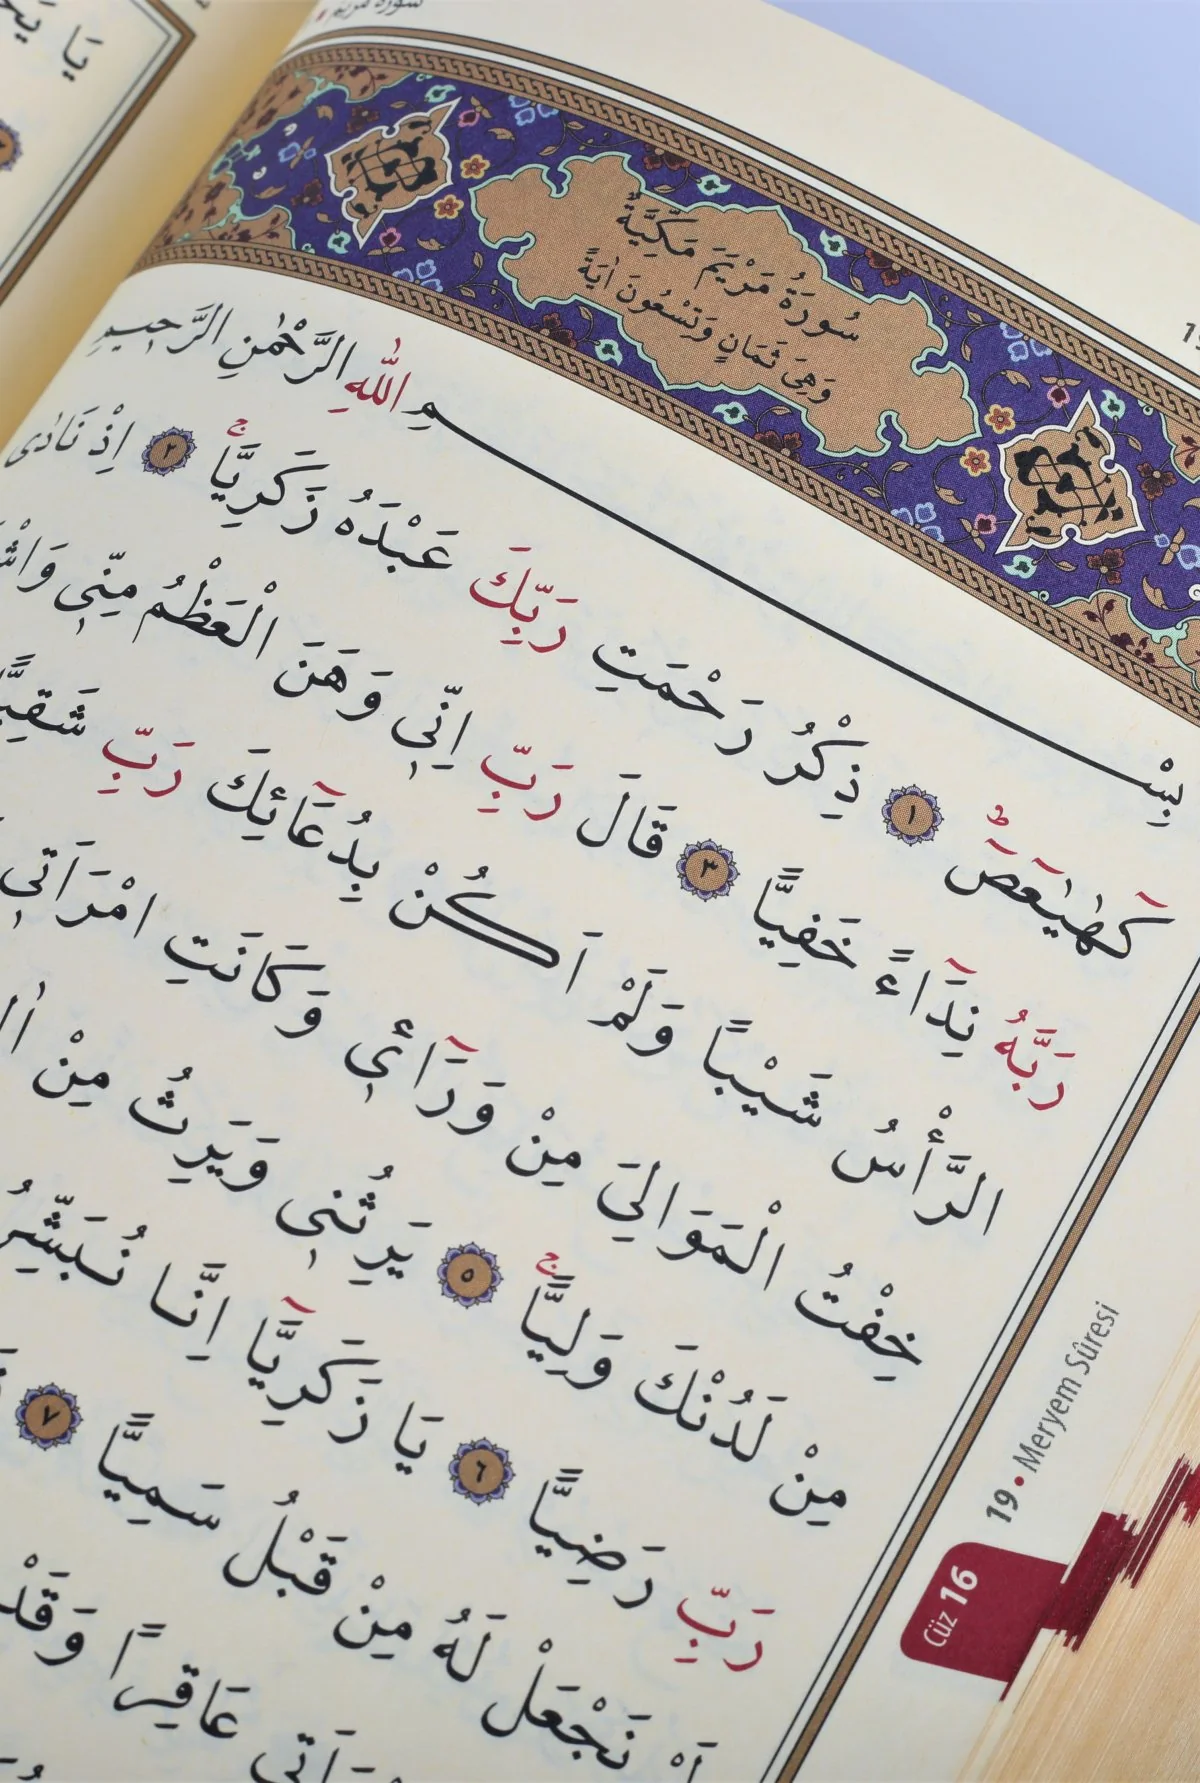 سورة مريم
سُورَةُ مَرْيَمَ مَكِّيَّةٌ
وَهِىَ ثَمَانٍ وَتِسْعُونَ اٰيَةً
بِسْمِ اللّٰهِ الرَّحْمٰنِ الرَّحِيمِ
كٓهٰيٰعٓصٓ ۚ ١ ذِكْرُ رَحْمَتِ رَبِّكَ عَبْدَهُ زَكَرِيَّاۚ ٢ اِذْ نَادٰى
رَبَّهُ نِدَٓاءً خَفِيًّا ٣ قَالَ رَبِّ اِنّ۪ي وَهَنَ الْعَظْمُ مِنّ۪ي
الرَّأْسُ شَيْبًا وَلَمْ اَكُنْ بِدُعَٓائِكَ رَبِّ شَقِيًّا
خِفْتُ الْمَوَالِيَ مِنْ وَرَٓاء۪ى وَكَانَتِ امْرَاَت۪ي
مِنْ لَدُنْكَ وَلِيًّاۚ ٥ يَرِثُن۪ي وَيَرِثُ مِنْ
رَبِّ رَضِيًّا ٦ يَا زَكَرِيَّٓا اِنَّا نُبَشِّرُ
نَجْعَلْ لَهُ مِنْ قَبْلُ سَمِيًّا ٧
عَاقِرًا وَقَدْ
19 • Meryem Sûresi
Cüz 16